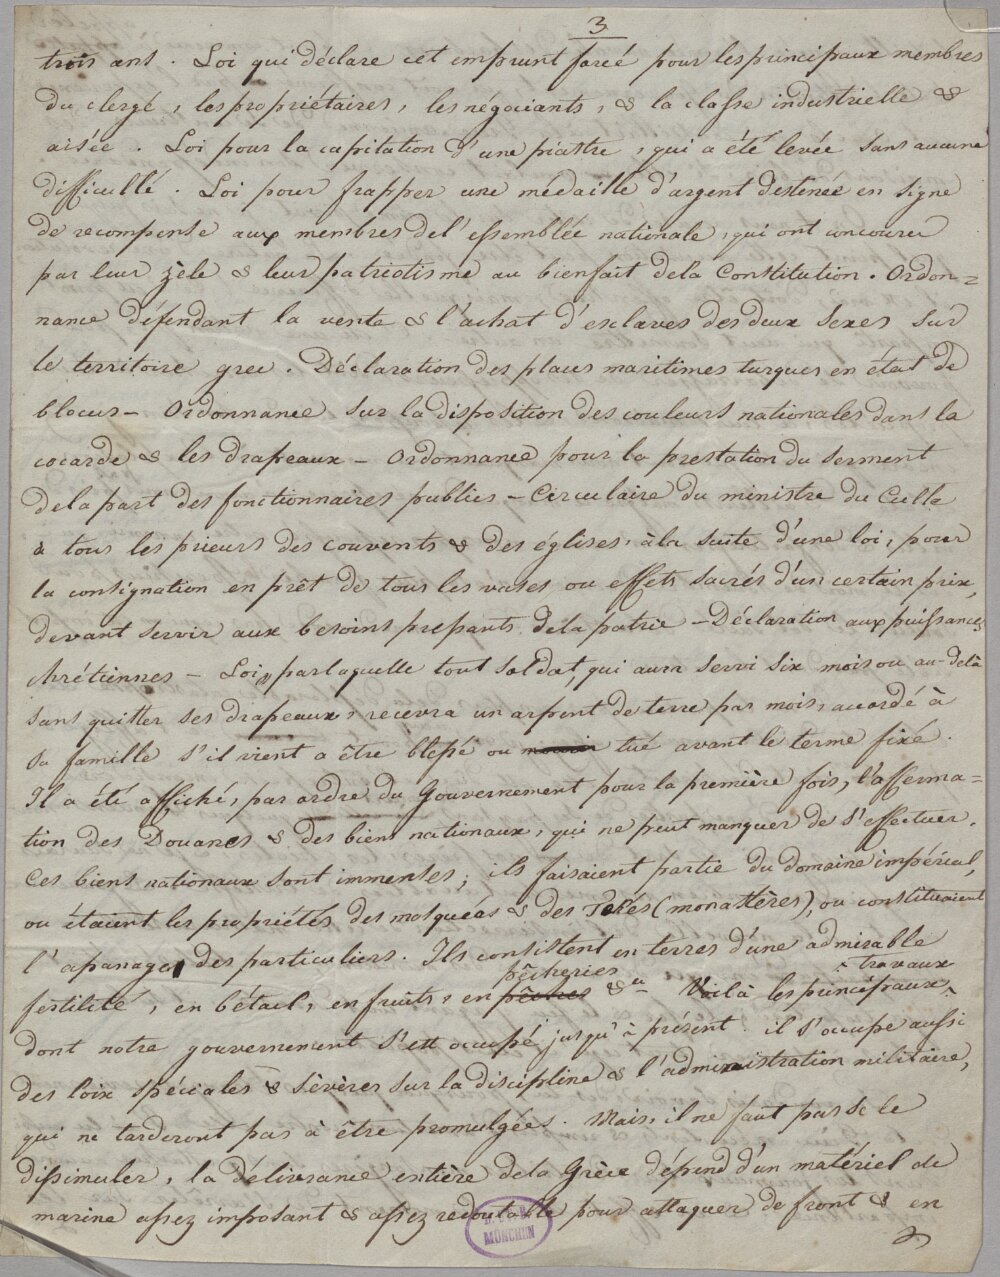 3
trois ans. Loi qui déclare cet emprunt forcé pour les principaux membres
du clergé, les propriétaires, les négociants, & la classe industrielle &
aisée. Loi pour la capitation d'une piastre, qui a été levée sans aucune
difficulté. Loi pour frapper une médaille d'argent destinée en signe
de recompense aux membres de l'assemblée nationale, qui ont concouru
par leur zèle & leur patriotisme au bienfait dela Constitution. Ordon=
nance défendant la vente & l'achat d'esclaves des deux sexes sur
le territoire grec. Déclaration des places maritimes turques en état de
blocus – Ordonnance sur la disposition des couleurs nationales dans la
cocarde & les drapeaux – Ordonnance pour la prestation du serment
dela part des fonctionnaires publics – Circulaire du ministre du Culte
à tous les prieurs des couvents & des églises, àla suite d'une loi, pour
la consignation en prêt de tous les vases ou effets sacrés d'un certain prix,
devant servir aux besoins pressants dela patrie – Déclaration aux puissances
chrétiennes – Loi, par laquelle tout soldat, qui aura servi six mois ou au-delà
sans quitter ses drapeaux, recevra un arpent de terre par mois, accordé à
sa famille s'il vient a être blessé ou mourir tué avant le terme fixé.
Il a été affiché, par ordre du Gouvernement pour la première fois, l'afferma=
tion des Douanes & des biens nationaux, qui ne peut manquer de s'effectuer.
Ces biens nationaux sont immenses; ils faisaient partie du domaine impérial,
ou étaient les propriétés des mosquées & des Tekés (monastères), ou constituaient
l'apanage des particuliers. Ils consistent en terres d'une admirable
fertilité, en bétail, en fruits, en pêches pêcheries &a Voilà les principaux travaux
dont notre gouvernement s'est occupé jusqu'à présent. il s'occupe aussi
des loix spéciales & sévères sur la discipline & l'administration militaire,
qui ne tarderont pas à être promulgées. Mais, il ne faut pas se le
dissimuler, la délivrance entière dela Grèce dépend d'un matériel de
marine assez imposant & assez redoutable pour attaquer de front & en
MÜNCHEN